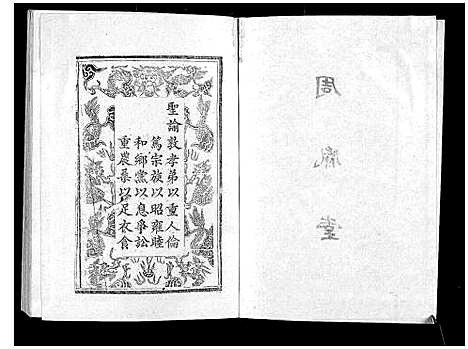 聖諭敦孝弟以重人倫
篤宗族以昭雍睦
和鄉黨以息爭訟
重農桑以足衣食
周
堂